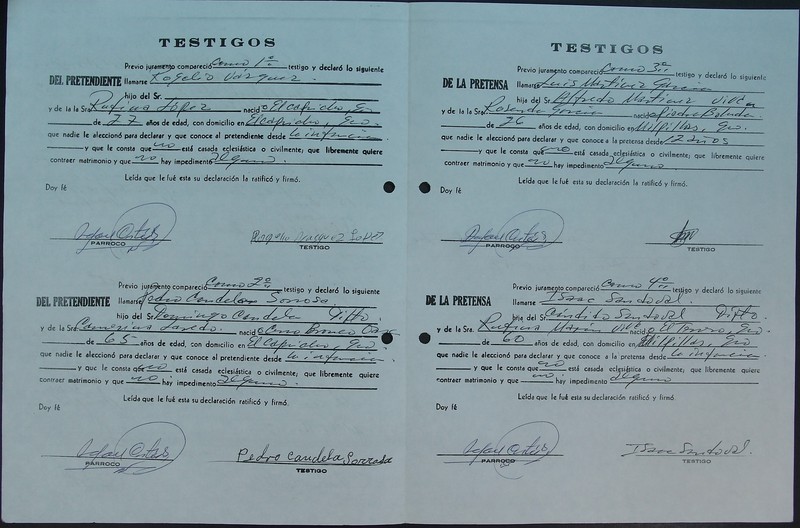 TESTIGOS
Previo juramento compareció Como 1º testigo y declaró lo siguiente
DEL PRETENDIENTE llamarse Rogelio Vázquez.
hijo del Sr.
y de la la Sra. Rufina López nació El Capricho, Gto
de 77 años de edad, con domicilio en El Capricho, Gto.
que nadie le aleccionó para declarar y que conoce al pretendiente desde la infancia
y que le consta que no está casada eclesiástica o civilmente; que libremente quiere
contraer matrimonio y que no hay impedimento alguno.
Leída que le fué esta su declaración la ratificó y firmó.
Doy fé
PARROCO
Rogelio Vazquez Lopez
TESTIGO
Previo juramento compareció Como 2º testigo y declaró lo siguiente
DEL PRETENDIENTE llamarse Pedro Candelas
hijo del Sr. Domingo Candela
y de la Sra. nació
de 65 años de edad, con domicilio en El Capricho, Gto.
que nadie le aleccionó para declarar y que conoce al pretendiente desde la infancia
y que le consta que no está casada eclesiástica o civilmente; que libremente quiere
contraer matrimonio y que no hay impedimento alguno.
Leída que le fué esta su declaración ratificó y firmó.
Doy fé
PARROCO
Pedro Candela
TESTIGO
TESTIGOS
Previo juramento compareció Como 3º testigo y declaró lo siguiente
DE LA PRETENSA llamarse Luis Martínez García
hijo del Sr. Alfredo Martínez
y de la Sra. García nació
de 26 años de edad, con domicilio en Milpillas, Gto.
que nadie le aleccionó para declarar y que conoce a la pretensa desde 12 años
y que le consta que no está casada eclesiástica o civilmente; que libremente quiere
contraer matrimonio y que no hay impedimento alguno
Leída que le fué esta su declaración la ratificó y firmó.
Doy fé
PARROCO
TESTIGO
Previo juramento compareció Como 4º testigo y declaró lo siguiente
DE LA PRETENSA llamarse Isaac Sandoval.
hijo del Sr. Cándido Sandoval
y de la Sra. Rufina nació
de 60 años de edad, con domicilio en Milpillas, Gto
que nadie le aleccionó para declarar y que conoce a la pretensa desde la infancia
y que le consta que no está casada eclesiástica o civilmente; que libremente quiere
contraer matrimonio y que no hay impedimento alguno
Leída que le fué esta su declaración ratificó y firmó.
Doy fé
PARROCO
Isaac Sandoval.
TESTIGO